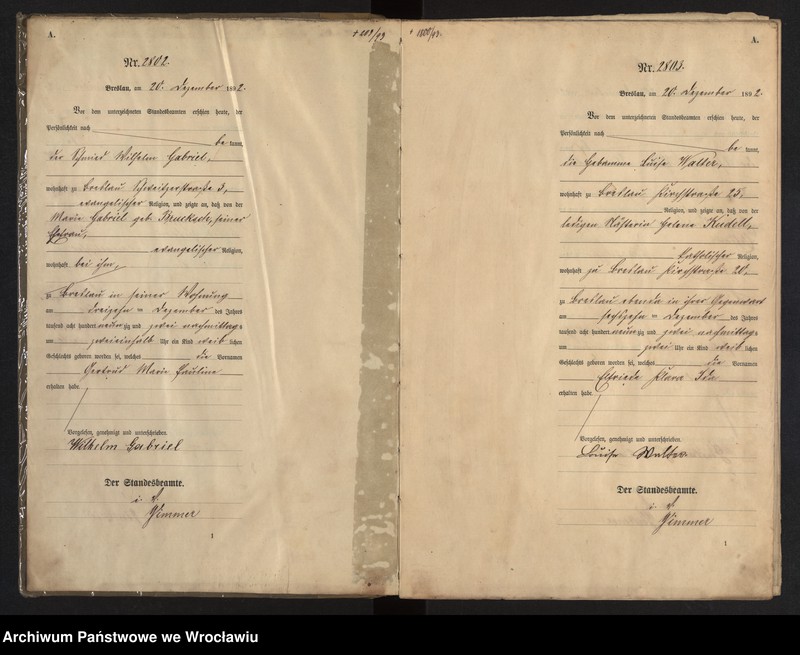 A.
Nr. 2802.
Breslau, am 20. Dezember 1892.
Vor dem unterzeichneten Standesbeamten erschien heute, der
Persönlichkeit nach
be kannt,
der Schmied Wilhelm Gabriel,
wohnhaft zu Breslau
evangelischer Religion, und zeigte an, daß von der
Marie Gabriel geb. seiner
Ehefrau,
evangelischer Religion,
wohnhaft bei ihm,
zu Breslau in seiner Wohnung
am dreizehn ten Dezember des Jahres
tausend acht hundert neunzig und zwei nachmittags
um zweieinhalb Uhr ein Kind weib lichen
Geschlechts geboren worden sei, welches die Vornamen
Gertrud Marie Pauline
erhalten habe.
Vorgelesen, genehmigt und unterschrieben.
Wilhelm Gabriel
Der Standesbeamte.
i. V.
Zimmer
1
A.
Nr. 2803.
Breslau, am 20. Dezember 1892.
Vor dem unterzeichneten Standesbeamten erschien heute, der
Persönlichkeit nach
be kannt,
die Hebamme Luise Walter,
wohnhaft zu Breslau Kirchstraße 25,
Religion, und zeigte an, daß von der
ledigen Helene Kudell,
katholischer Religion,
wohnhaft zu Breslau Kirchstraße 20,
zu Breslau ebenda in ihrer Gegenwart
am sechzehn ten Dezember des Jahres
tausend acht hundert neunzig und zwei nachmittags
um zwei Uhr ein Kind weib lichen
Geschlechts geboren worden sei, welches die Vornamen
Elfriede Klara Ida
erhalten habe.
Vorgelesen, genehmigt und unterschrieben.
Louise Walter
Der Standesbeamte.
i. V.
Zimmer
1
Archiwum Państwowe we Wrocławiu